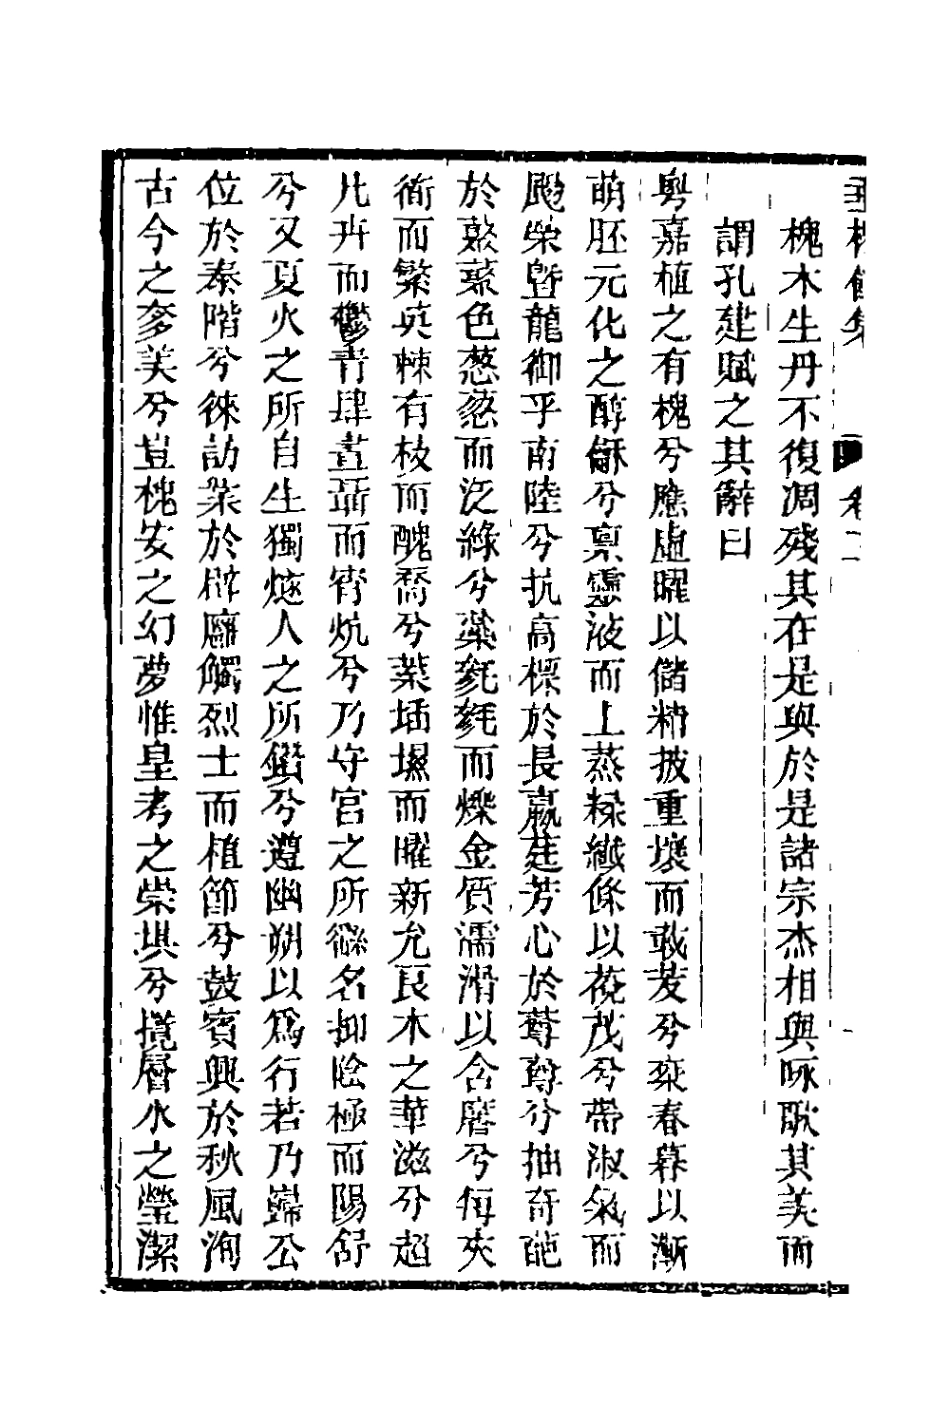 卷二
槐木生丹不復凋殘其在是與於是諸宗杰相與咏歌其美而
謂孔建賦之其辭曰
粤嘉植之有槐兮應虛曜以儲精披重壤而敢茇兮乘春暮以漸
萌胚元化之醇龢兮禀靈液而上蒸糅纖條以菴茂兮帶淑氣而
颺榮曁龍御乎南陸兮抗高標於長嬴莛芳心於蓴蓴兮抽奇葩
於蔌蔌色葱蘢而泛綠兮蘂毿毿而爍金質濡滑以含磨兮每夾
衛而繁英棘有枝而醜喬兮葉插堀而曜新允良木之華滋兮超
凡卉而鬱青肆晝聶而宵炕兮乃守宫之所繇名抑陰極而陽舒
兮又夏火之所自生獨燧人之所鑽兮遵幽朔以爲行若乃歸公
位於泰階兮徠訪槩於辟廱觸烈士而植節兮鼓賓興於秋風洵
古今之奓美兮豈槐安之幻夢惟皇考之崇堪兮攬層水之瑩潔